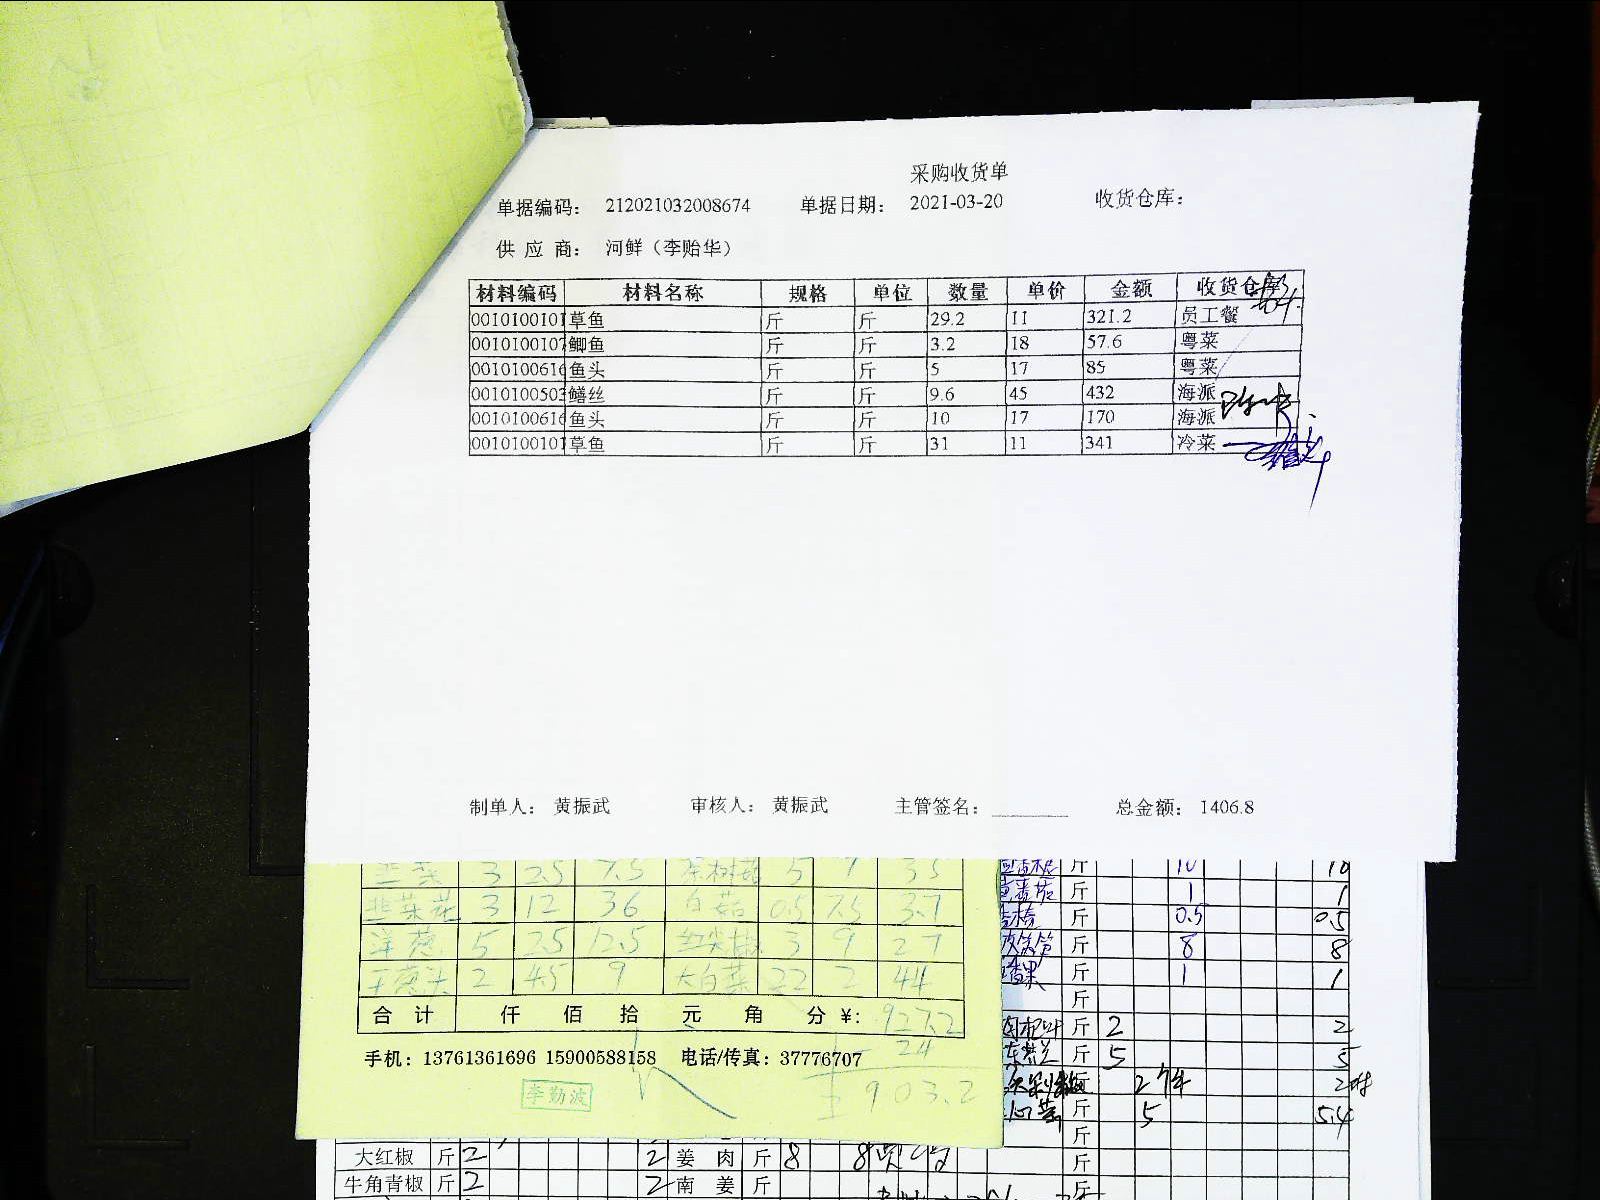 采购收货单
单据编码： 212021032008674 单据日期： 2021-03-20 收货仓库：
供 应 商： 河鲜（李贻华）
材料编码 材料名称 规格 单位 数量 单价 金额 收货仓库
0010100101 草鱼 斤 斤 29.2 11 321.2 员工餐
0010100107 鲫鱼 斤 斤 3.2 18 57.6 粤菜
0010100616 鱼头 斤 斤 5 17 85 粤菜
0010100503 鳝丝 斤 斤 9.6 45 432 海派
0010100616 鱼头 斤 斤 10 17 170 海派
0010100101 草鱼 斤 斤 31 11 341 冷菜
制单人： 黄振武 审核人： 黄振武 主管签名： 总金额： 1406.8
韭菜 3 2.5 7.5 茶树菇 5 7 35
韭菜花 3 12 36 白菇 0.5 7.5 3.7
洋葱 5 2.5 12.5 红尖椒 3 9 27
干葱头 2 4.5 9 大白菜 22 2 44
合 计 仟 佰 拾 元 角 分 ¥: 927.2
24
903.2
手机：13761361696 15900588158 电话/传真：37776707
李勤波
斤 10 10
斤 1 1
斤 0.5 0.5
斤 8 8
斤 1 1
斤
斤 2 2
斤 5 5
斤 2
斤 5 5.4
斤
斤
斤
大红椒 斤 2 2 姜 肉 斤 8 8
牛角青椒 斤 2 2 南 姜 斤